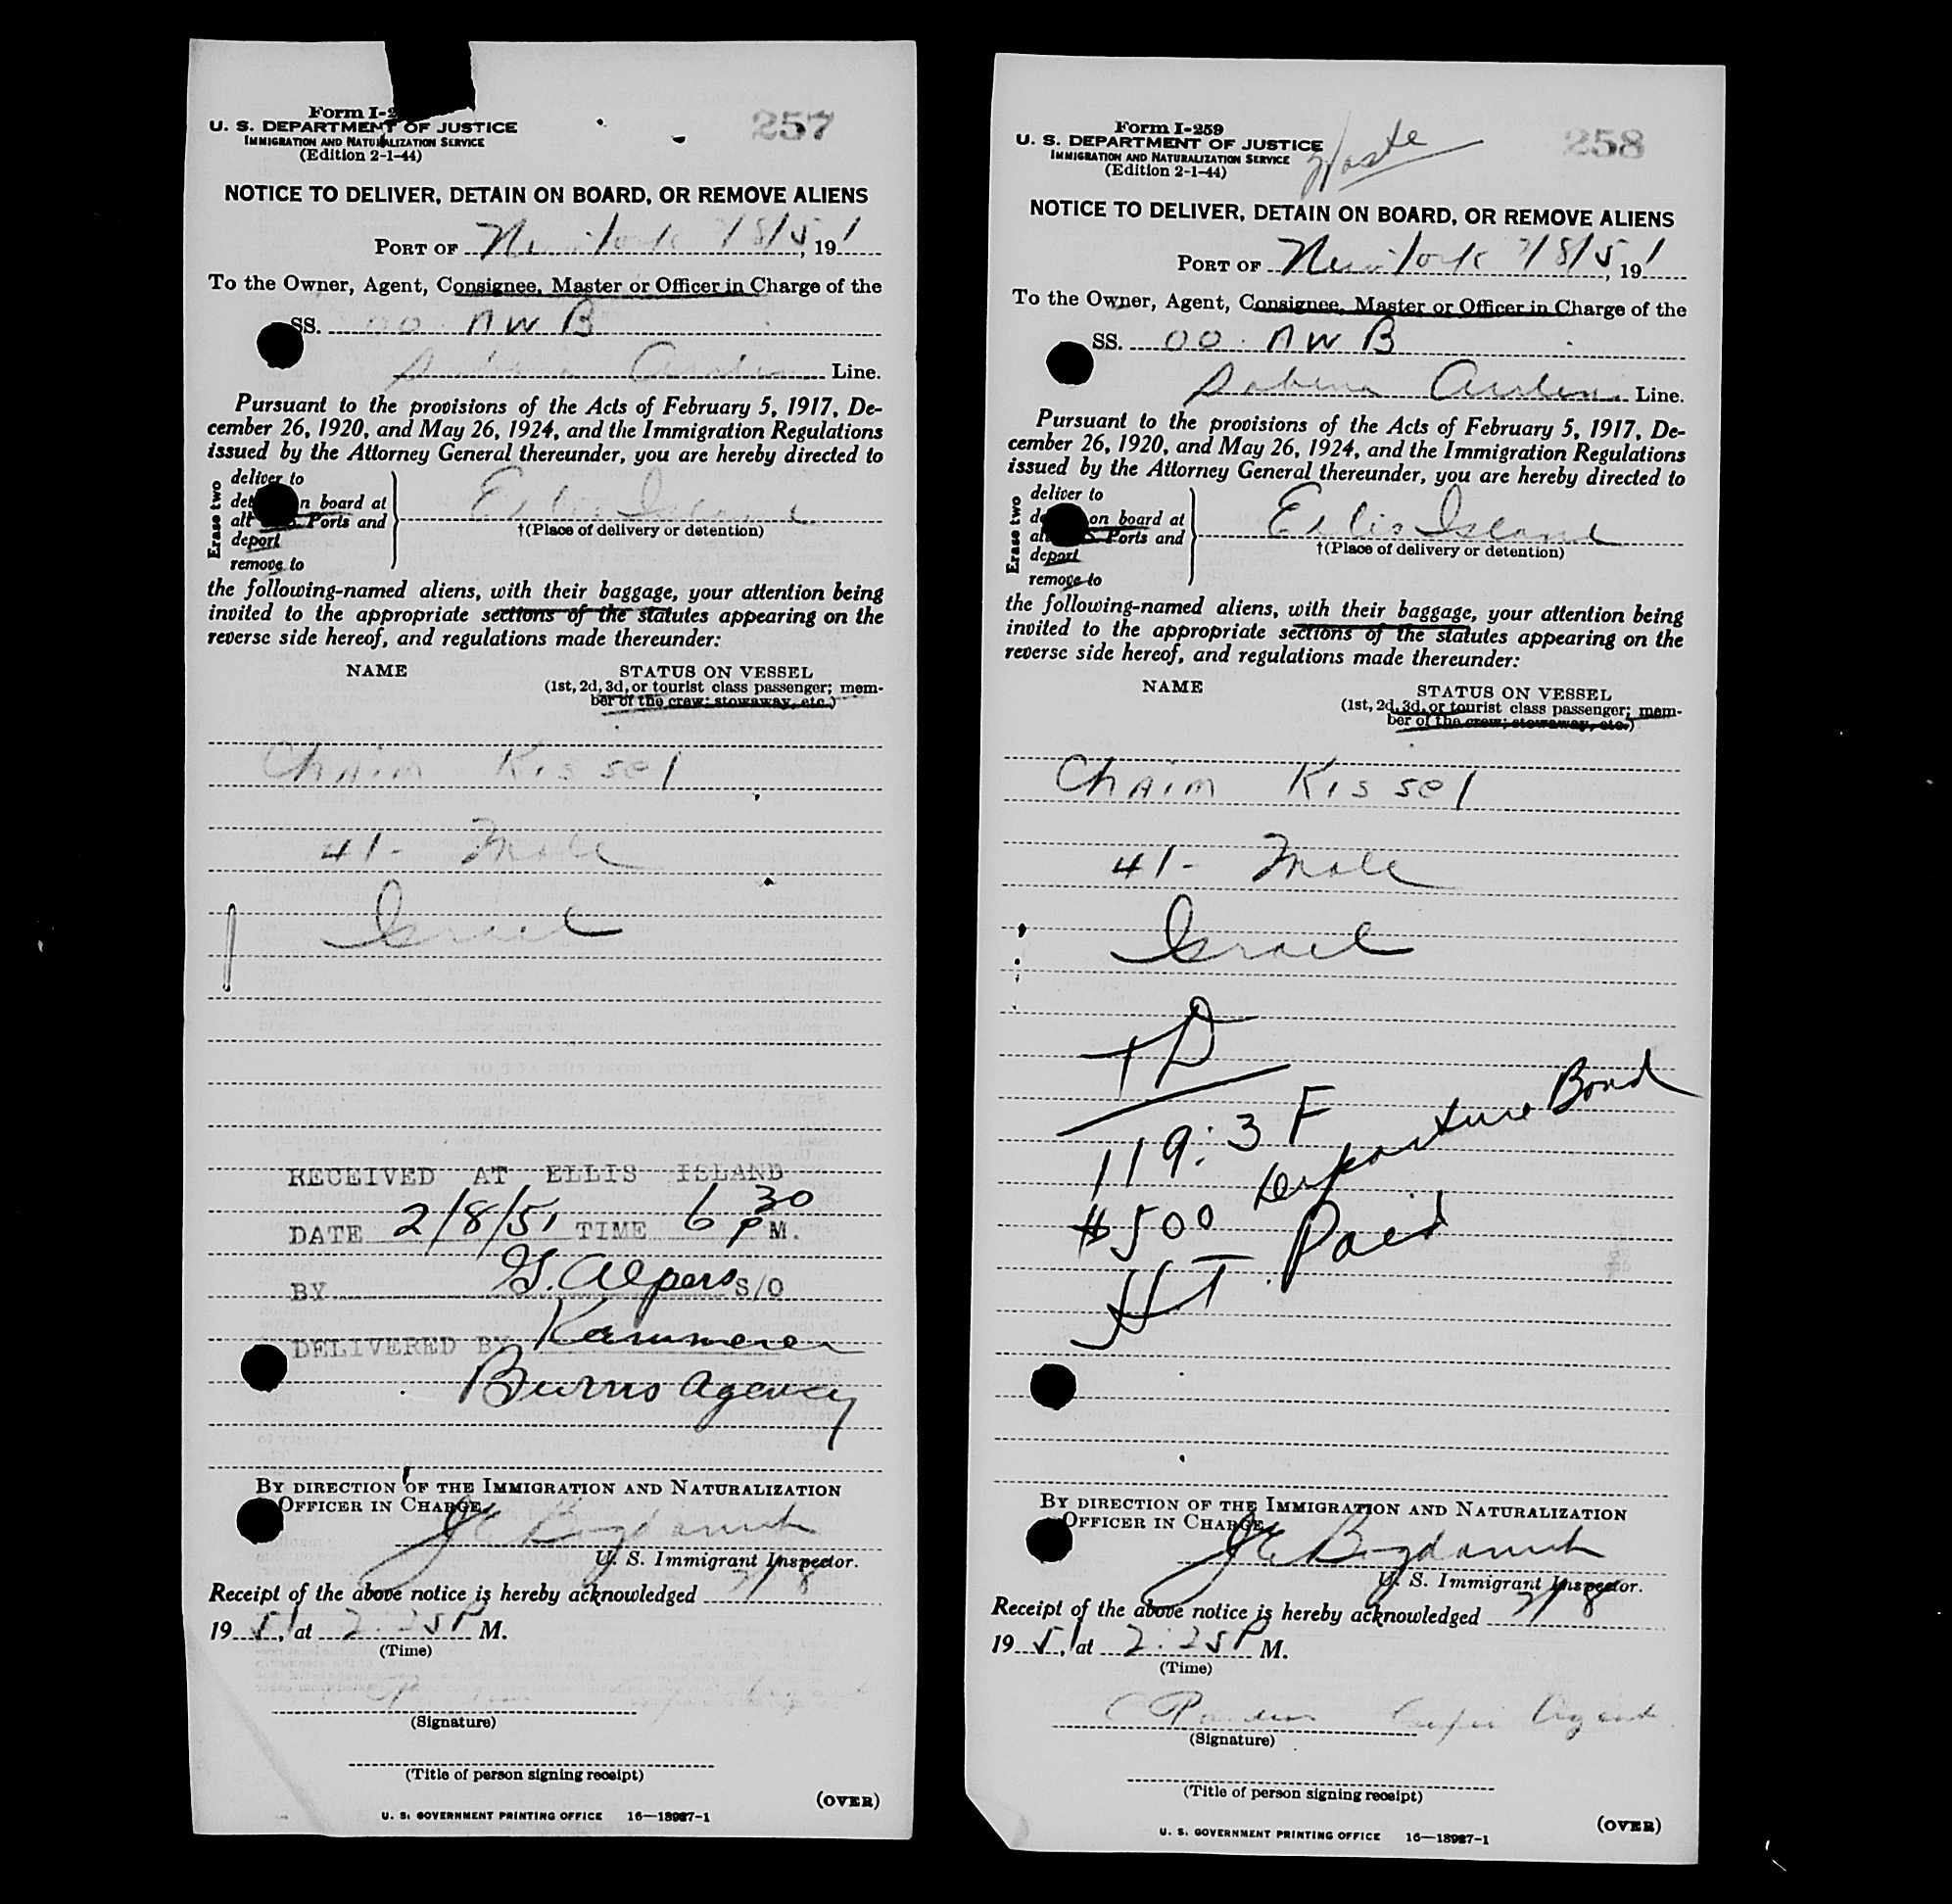 257
Form I-2
U. S. DEPARTMENT OF JUSTICE
IMMIGRATION AND NATURALIZATION SERVICE
(Edition 2-1-44)
NOTICE TO DELIVER, DETAIN ON BOARD, OR REMOVE ALIENS
PORT OF New York 2/8/51, 191
To the Owner, Agent, Consignee, Master or Officer in Charge of the
SS. OO-AWB
Sabena Airlines Line.
Pursuant to the provisions of the Acts of February 5, 1917, De-
cember 26, 1920, and May 26, 1924, and the Immigration Regulations
issued by the Attorney General thereunder, you are hereby directed to
Erase two
deliver to
det n board at
all S. Ports and
deport
remove to
Ellis Island
†(Place of delivery or detention)
the following-named aliens, with their baggage, your attention being
invited to the appropriate sections of the statutes appearing on the
reverse side hereof, and regulations made thereunder:
NAME STATUS ON VESSEL
(1st, 2d, 3d, or tourist class passenger; mem-
ber of the crew; stowaway, etc.)
Chaim Kissel
41- Male
Israel
RECEIVED AT ELLIS ISLAND
DATE 2/8/51 TIME 6 30 PM.
BY G. Alpers S/O
DELIVERED BY Kammerer
Burns Agency
BY DIRECTION OF THE IMMIGRATION AND NATURALIZATION
OFFICER IN CHARGE
U. S. Immigrant Inspector.
Receipt of the above notice is hereby acknowledged 2/8
1951, at 2:25 P M.
(Time)
(Signature)
(Title of person signing receipt)
(OVER)
U. S. GOVERNMENT PRINTING OFFICE 16—18987-1
258
Form I-259
U. S. DEPARTMENT OF JUSTICE
IMMIGRATION AND NATURALIZATION SERVICE
(Edition 2-1-44)
NOTICE TO DELIVER, DETAIN ON BOARD, OR REMOVE ALIENS
PORT OF New York 2/8/51, 191
To the Owner, Agent, Consignee, Master or Officer in Charge of the
SS. OO-AWB
Sabena Airlines Line.
Pursuant to the provisions of the Acts of February 5, 1917, De-
cember 26, 1920, and May 26, 1924, and the Immigration Regulations
issued by the Attorney General thereunder, you are hereby directed to
Erase two
deliver to
de on board at
all S. Ports and
deport
remove to
Ellis Island
†(Place of delivery or detention)
the following-named aliens, with their baggage, your attention being
invited to the appropriate sections of the statutes appearing on the
reverse side hereof, and regulations made thereunder:
NAME STATUS ON VESSEL
(1st, 2d, 3d, or tourist class passenger; mem-
ber of the crew; stowaway, etc.)
Chaim Kissel
41- Male
Israel
TD
119:3F
$500 Departure Bond
HT. Paid
BY DIRECTION OF THE IMMIGRATION AND NATURALIZATION
OFFICER IN CHARGE
U. S. Immigrant Inspector.
Receipt of the above notice is hereby acknowledged 2/8
1951, at 2:25 P M.
(Time)
Agent
(Signature)
(Title of person signing receipt)
(OVER)
U. S. GOVERNMENT PRINTING OFFICE 16—18987-1